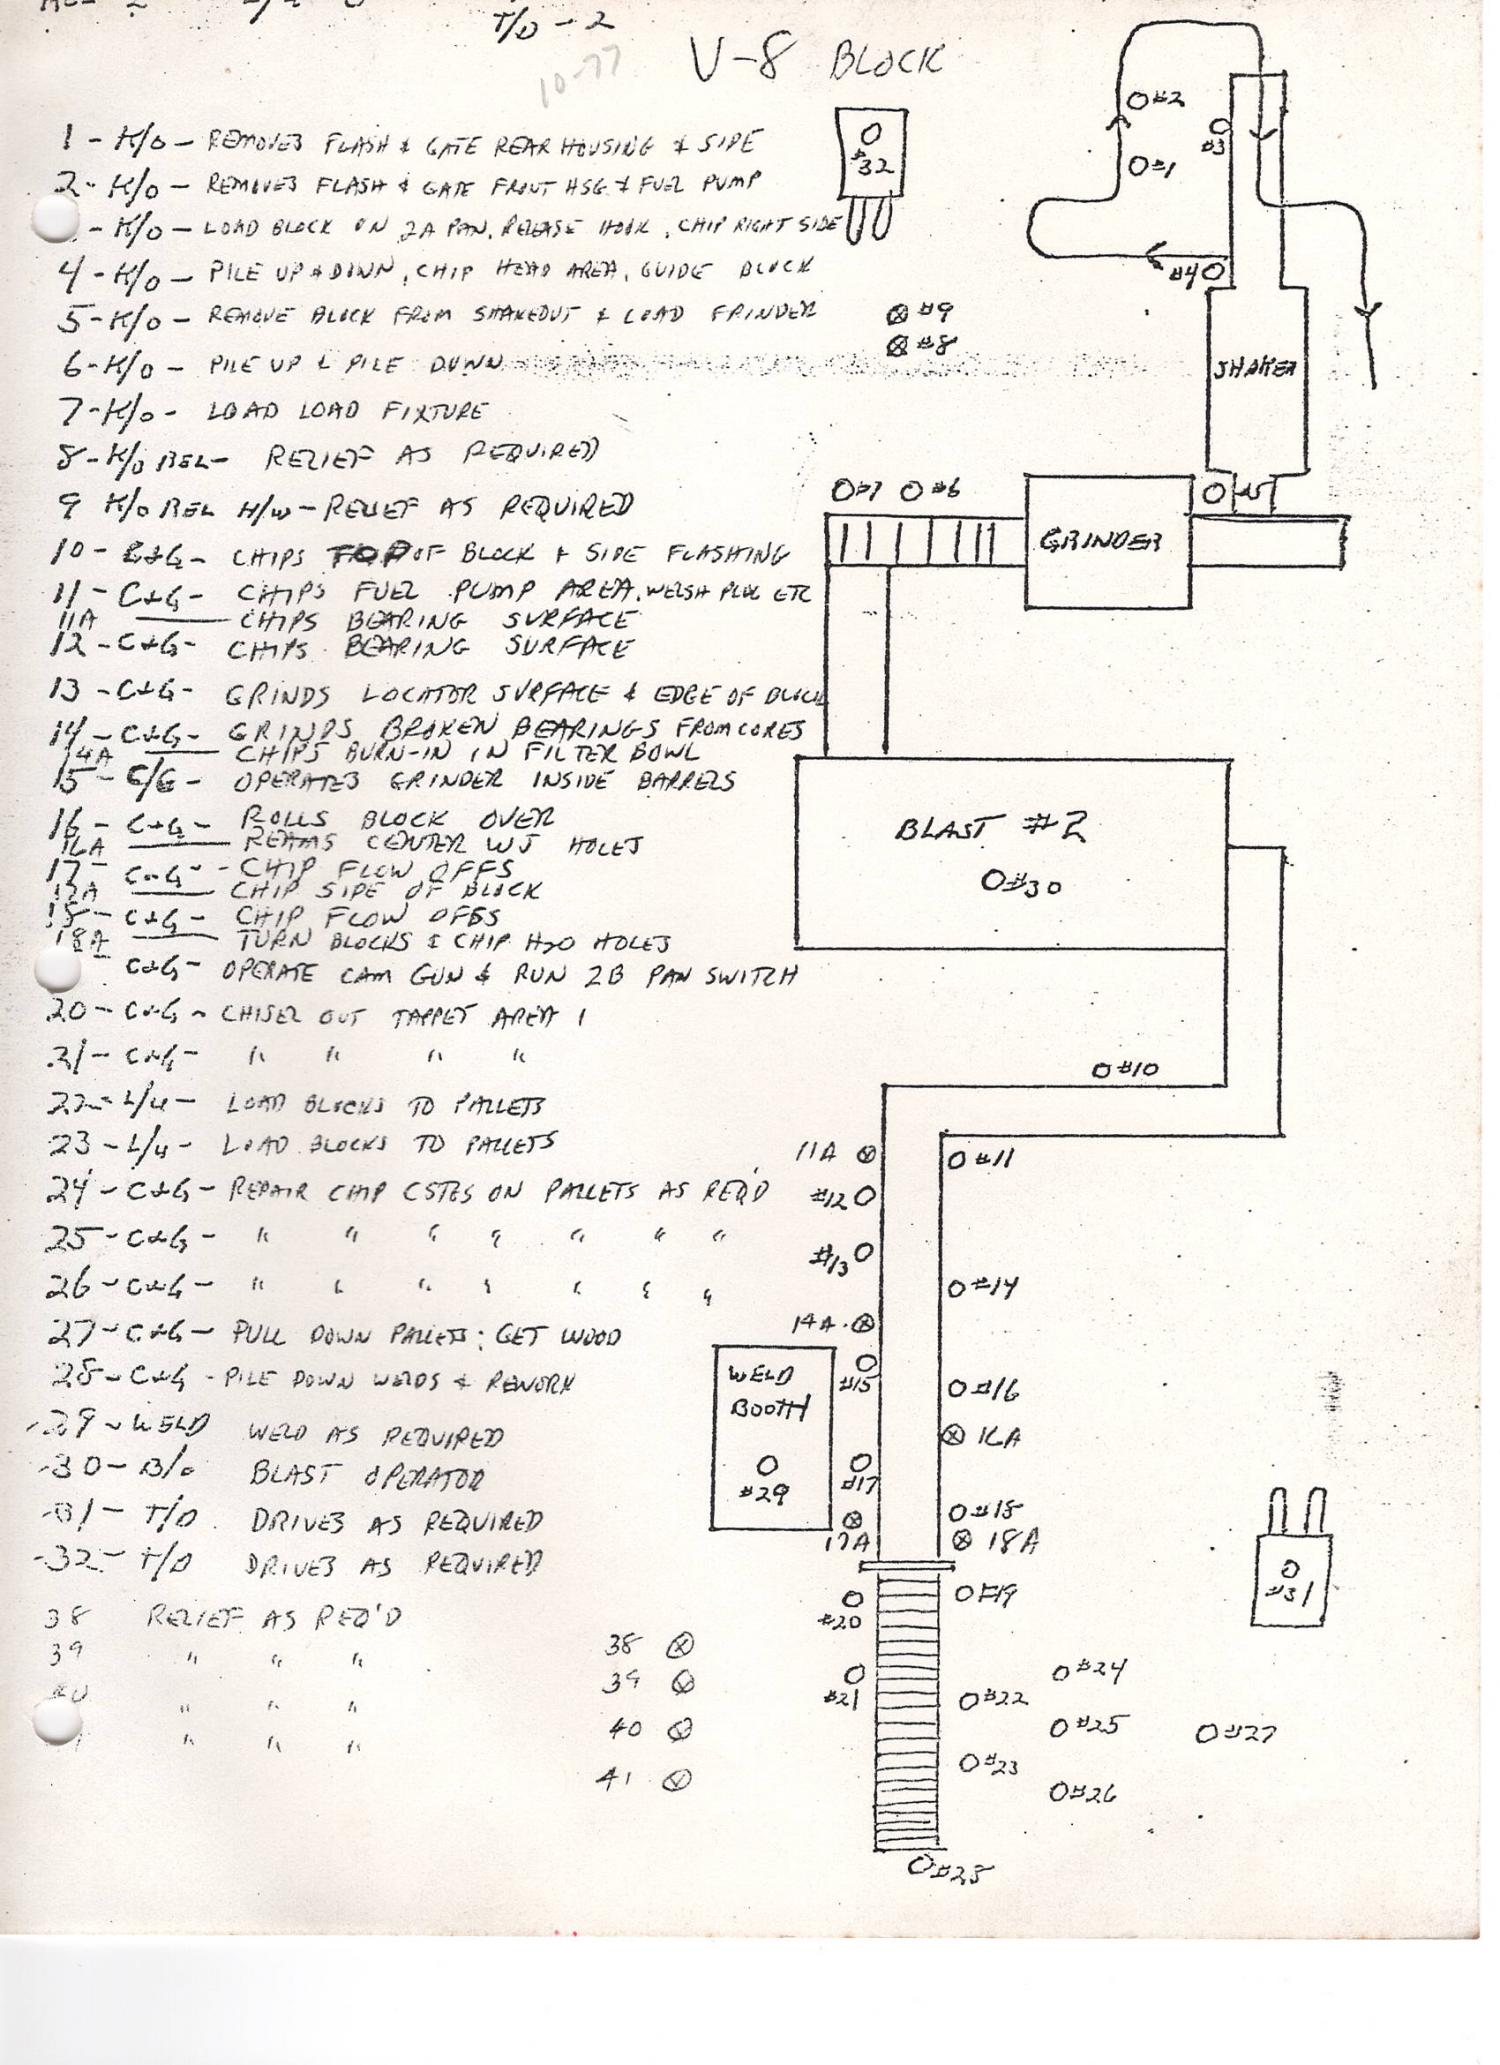 T/O - 2
10-77
V-8 BLOCK
1 - K/O - REMOVES FLASH & GATE REAR HOUSING & SIDE
2 - K/O - REMOVES FLASH & GATE FRONT HSG & FUEL PUMP
- K/O - LOAD BLOCK ON 2A PAN, RELEASE HOOK, CHIP RIGHT SIDE
4 - K/O - PILE UP & DOWN, CHIP HEAD AREA, GUIDE BLOCK
5 - K/O - REMOVE BLOCK FROM SHAKEOUT & LOAD FRINDER
6 - K/O - PILE UP & PILE DOWN
7 - K/O - LOAD LOAD FIXTURE
8 - K/O REL - RELIEF AS REQUIRED
9 K/O REL H/W - RELIEF AS REQUIRED
10 - C+G - CHIPS TOP OF BLOCK & SIDE FLASHING
11 - C+G - CHIPS FUEL PUMP AREA, WELSH PLUG ETC
11A CHIPS BEARING SURFACE
12 - C+G - CHIPS BEARING SURFACE
13 - C+G - GRINDS LOCATOR SURFACE & EDGE OF BLOCK
14 - C+G - GRINDS BROKEN BEARINGS FROM CORES
14A CHIPS BURN-IN IN FILTER BOWL
15 - C/G - OPERATES GRINDER INSIDE BARRELS
16 - C+G - ROLLS BLOCK OVER
16A REAMS CENTER WJ HOLES
17 - C+G - CHIP FLOW OFFS
17A CHIP SIDE OF BLOCK
18 - C+G - CHIP FLOW OFFS
18A TURN BLOCKS & CHIP H2O HOLES
C+G - OPERATE CAM GUN & RUN 2B PAN SWITCH
20 - C+G - CHISEL OUT TAPPET AREA 1
21 - C+G - " " " "
22 - L/U - LOAD BLOCKS TO PALLETS
23 - L/U - LOAD BLOCKS TO PALLETS
24 - C+G - REPAIR CHIP CSTGS ON PALLETS AS REQ'D
25 - C+G - " " " " " " "
26 - C+G - " " " " " " "
27 - C+G - PULL DOWN PALLETS; GET WOOD
28 - C+G - PILE DOWN WELDS & REWORK
29 - WELD WELD AS REQUIRED
30 - B/O BLAST OPERATOR
31 - T/O DRIVES AS REQUIRED
32 - T/O DRIVES AS REQUIRED
38 RELIEF AS REQ'D
39 " " "
40 " " "
" " "
38
39
40
41
#32
#2
#3
#1
#4
#9
#8
SHAKER
#7 #6
#5
GRINDER
BLAST #2
#30
#10
11A
#11
#12
#13
#14
14A
WELD
BOOTH
#29
#15
#16
16A
#17
17A
#18
18A
#31
#19
#20
#21
#22
#24
#25
#27
#23
#26
#28